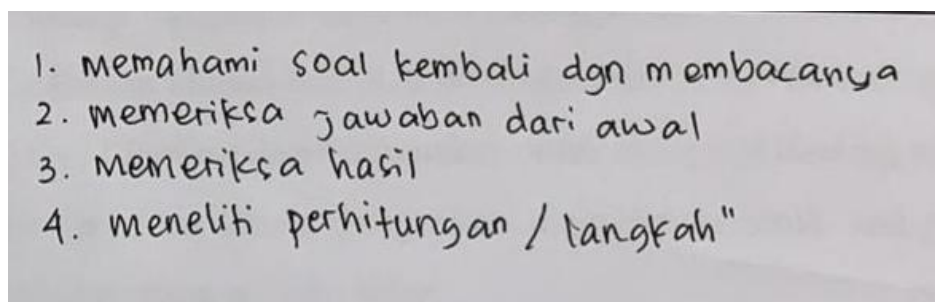 1. memahami soal kembali dgn membacanya
2. memeriksa jawaban dari awal
3. memeriksa hasil
4. meneliti perhitungan / langkah"